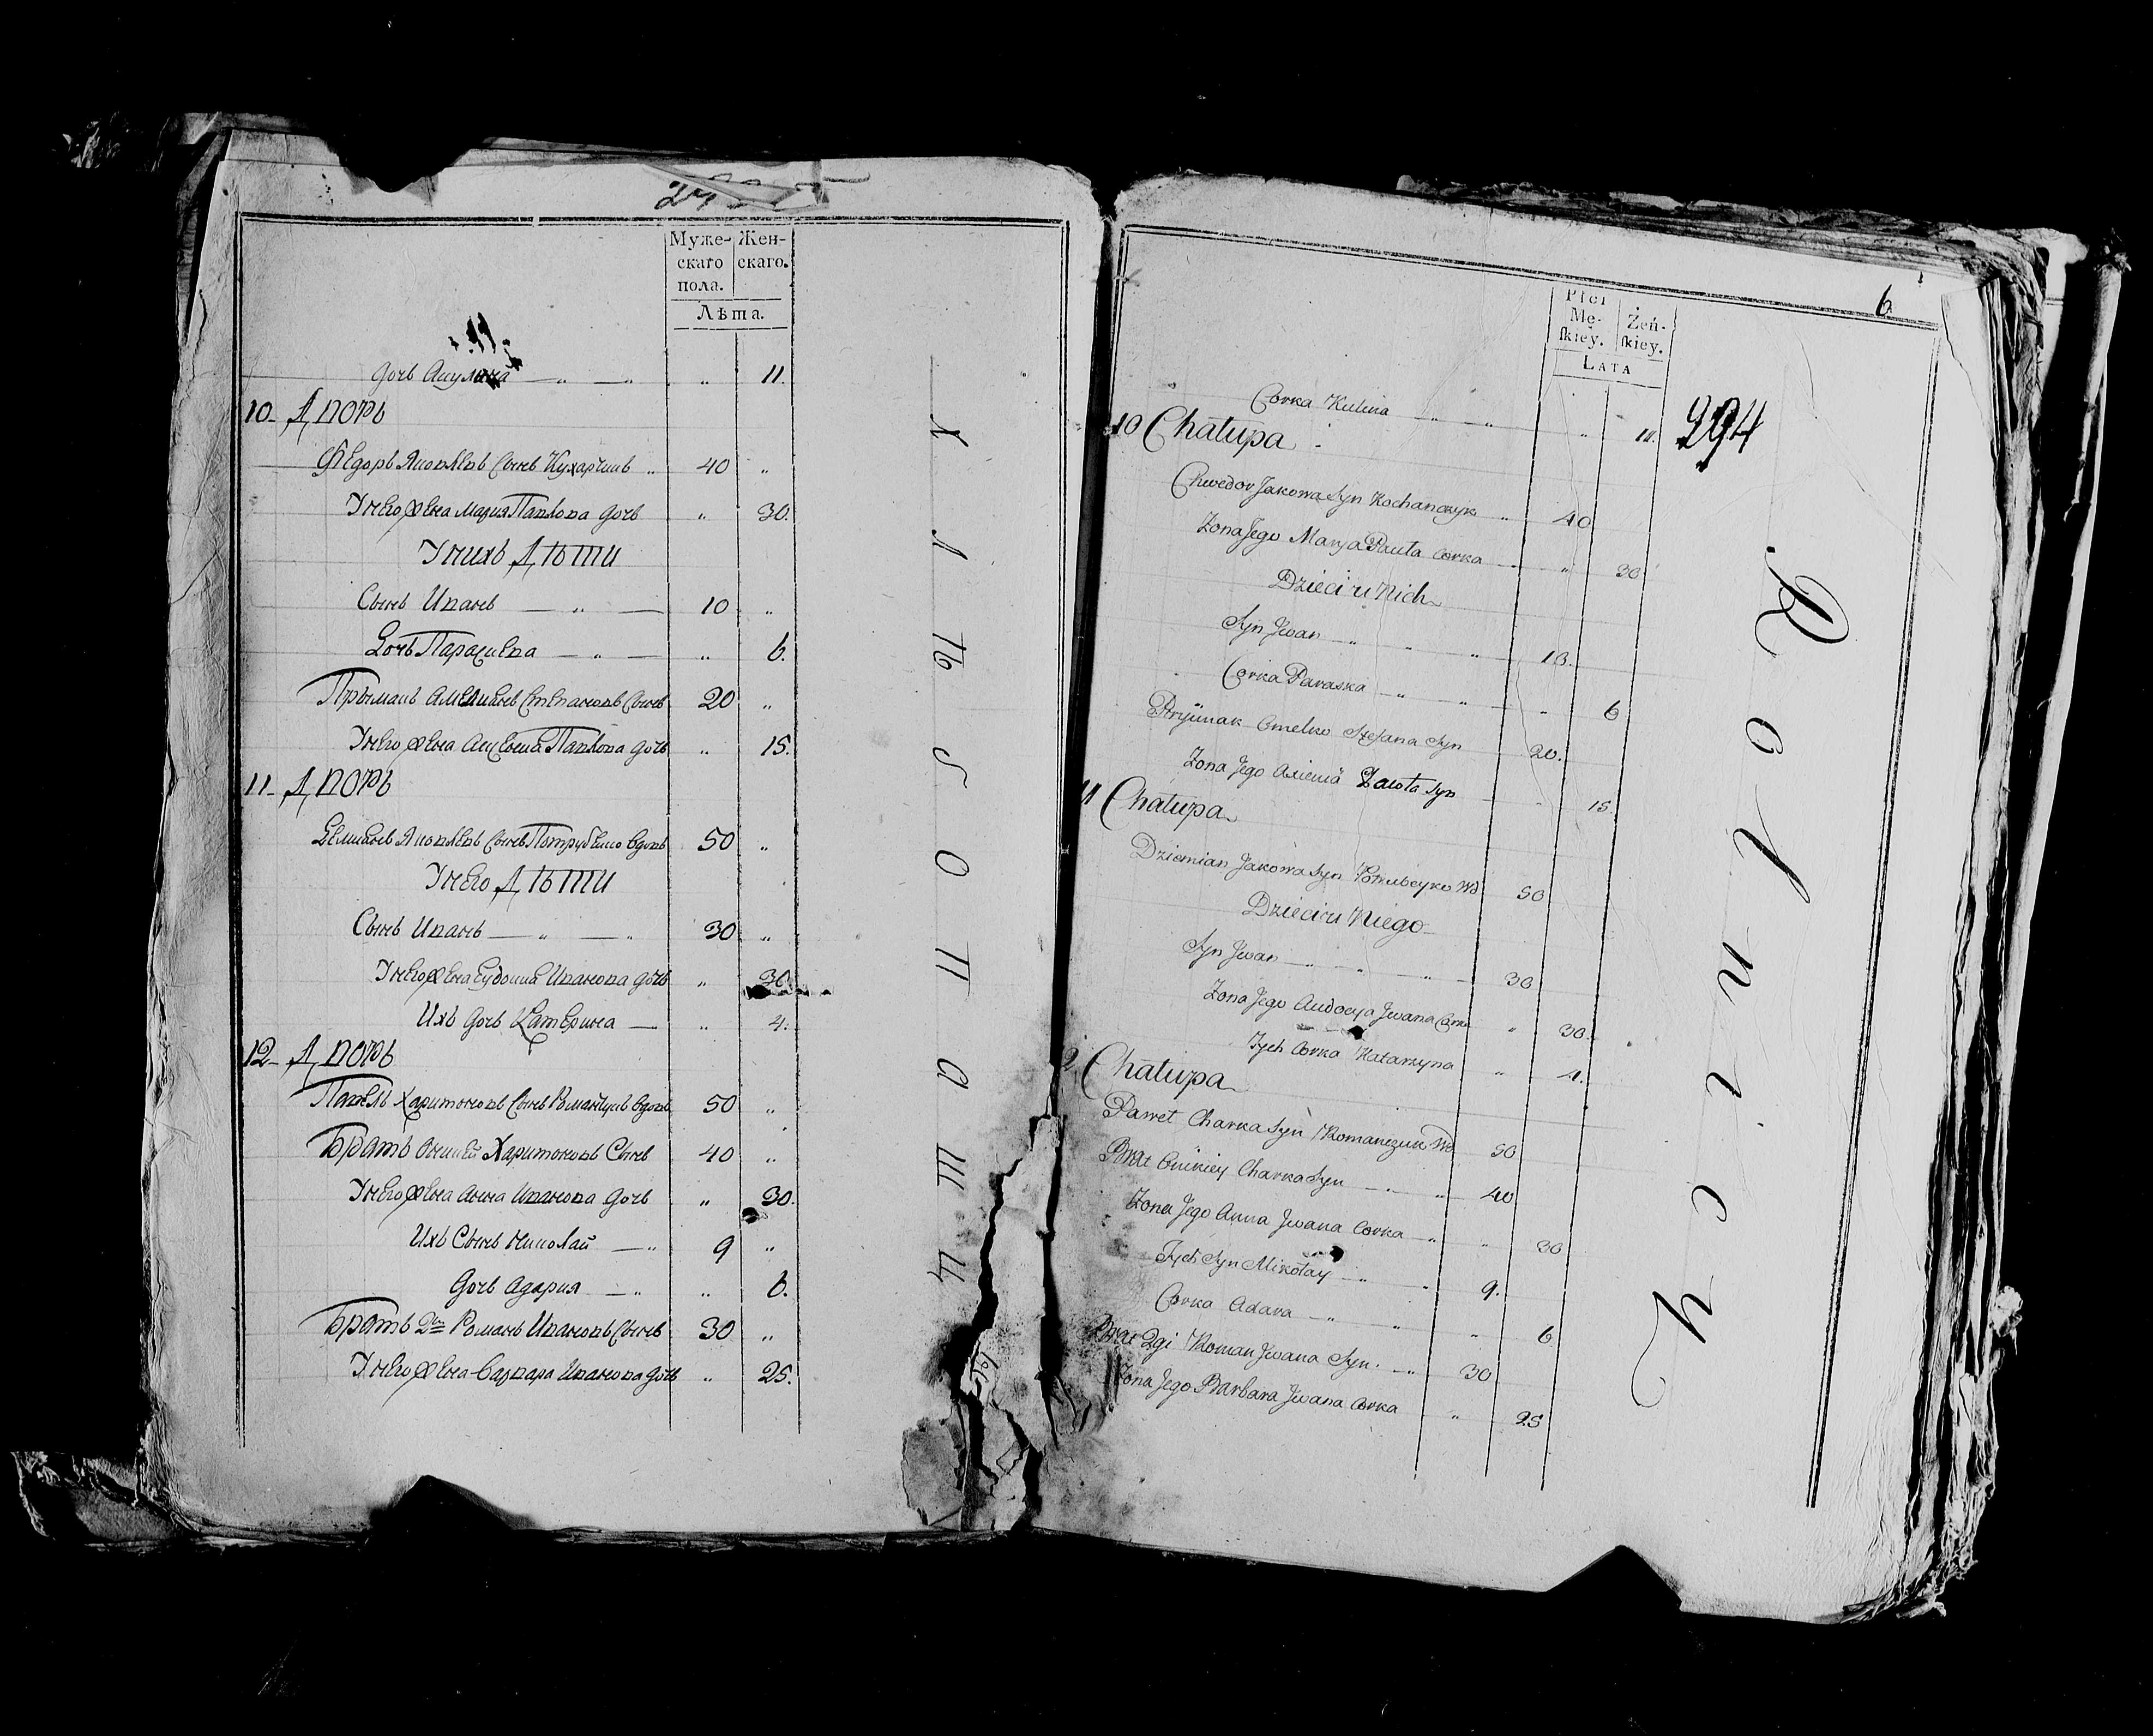 Муже-
скаго
пола.
Жен-
скаго.
Лѣта.
дочь Акулина — „ — „ „ 11.
10 - Дворъ
Ѳедоръ Яковлевъ Сынъ Кухарчикъ „ 40 „
У него жена Мария Павлова дочь „ 30.
У нихъ Дѣти
Сынъ Иванъ — „ — 10 „
Дочь Параскева — „ — „ 6.
Прымакъ Амелианъ Степановъ Сынъ 20 „
У него жена Аксения Павлова дочь „ 15.
11 - Дворъ
Демианъ Яковлевъ Сынъ Потрубейко вдовъ 50 „
У него Дѣти
Сынъ Иванъ — „ — „ 30 „
У него жена Евдокия Иванова дочь „ 30
Ихъ дочь Катерина — „ 4.
12 - Дворъ
Павелъ Харитоновъ Сынъ Романчукъ вдовъ 50 „
Братъ Харитоновъ Сынъ 40 „
У него жена Анна Иванова дочь „ 30.
Ихъ Сынъ Николай — „ 9 „
дочь Адария — „ „ 6.
Братъ 2й Романъ Ивановъ Сынъ 30 „
У него жена Варвара Иванова дочь „ 25.
ХЛѢБОПАШЦ
6
Płci
Mę-
ſkiey.
Żeń-
ſkiey.
LATA
294
Corka Kulina „ „ „ 11.
10 Chałupa
Chwedor Jakowa Syn Kochanczyk „ 40
Zona Jego Marya Pauła Corka „ 30
Dzieci u Nich
Syn Jwan „ „ „ 10.
Corka Paraska „ „ „ 6
Pryimak Omelko Stefana Syn 20.
Zona Jego Axienia Pauła Syn „ 15
11 Chałupa
Dziemian Jakowa Syn Potrubeyko Wd 50
Dzieci u Niego
Syn Jwan „ „ „ 30
Zona Jego Audocya Jwana Corka „ 30.
Jych Corka Katarzyna „ 4.
2 Chałupa
Paweł Charka Syn Romanczuk Wd 50
Brat Onikiey Charka Syn „ „ 40
Zona Jego Anna Jwana Corka „ „ 30
Jych Syn Mikołay „ „ 9.
Corka Adara „ „ „ 6
Brat 2gi Roman Jwana Syn. „ 30
Zona Jego Barbara Jwana Corka „ 25
Rolnicy